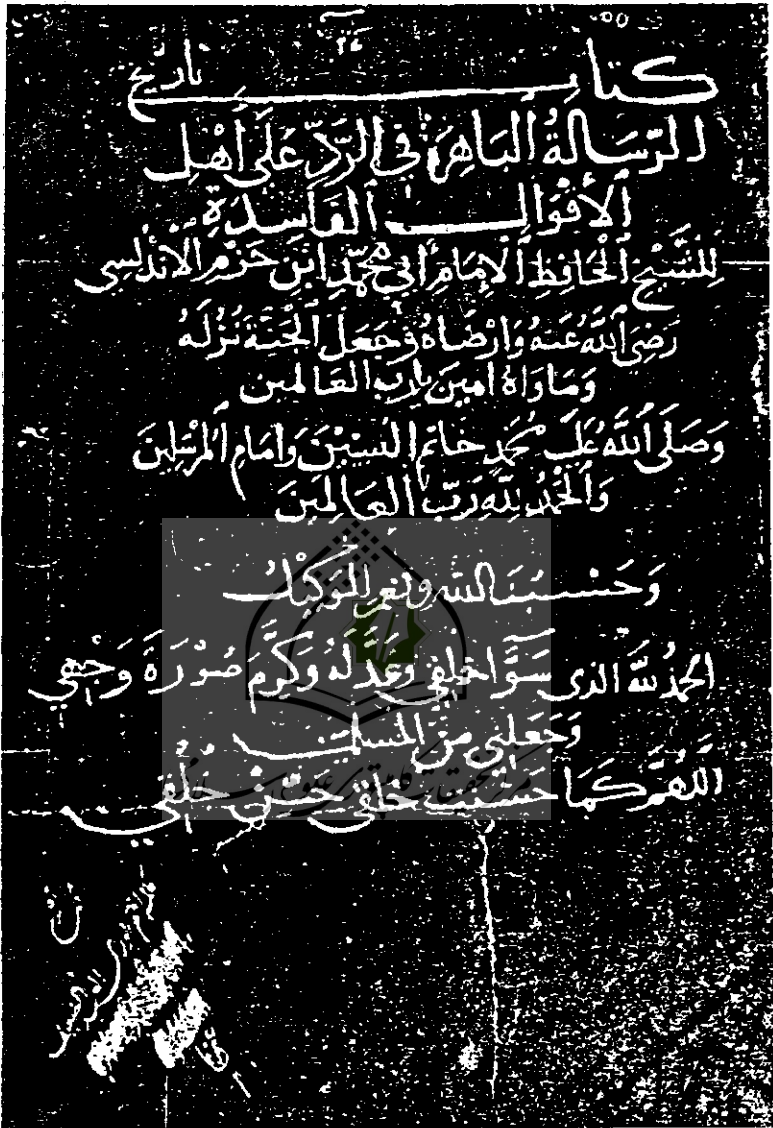 كتاب
تاريخ
الرِّسَالَةُ البَاهِرَة فى الرَّدِّ عَلَى أَهْلِ
الأقْوَالِ الفَاسِدَةِ
لِلشَّيْخِ الْحَافِظِ الإِمَامِ أَبي مُحَمَّدِ ابْن حَزْمِ الأنْدلُسِى
رَضِيَ اللهُ عَنهُ وَأرْضَاهُ وَجَعَلَ الْجَنَّةَ نُزُلَهُ
وَمَاوَاهُ امين يارب العَالمين
وَصَلَى اللَّهُ عَلَى مُحَمَدٍ خَاتمِ النبيّيْنَ وَامَامِ المُرْسَلِينَ
وَالْحَمْدُ لِلَّهِ رَبّ العَالَمِينَ
وَحَسْبُنَا الله ونعم الوَكِيْلُ
الحمدُ للهَ الذى سَوَّا خلقي وَعَدَّلَهُ وَكَرَّمَ صُوْرَةَ وَجْهِي
وَجَعَلَني مِنَ المُسلمين
اللهُمَّ كَمَا حَسَّنْتَ خَلقي حَسِّنْ خُلُقي